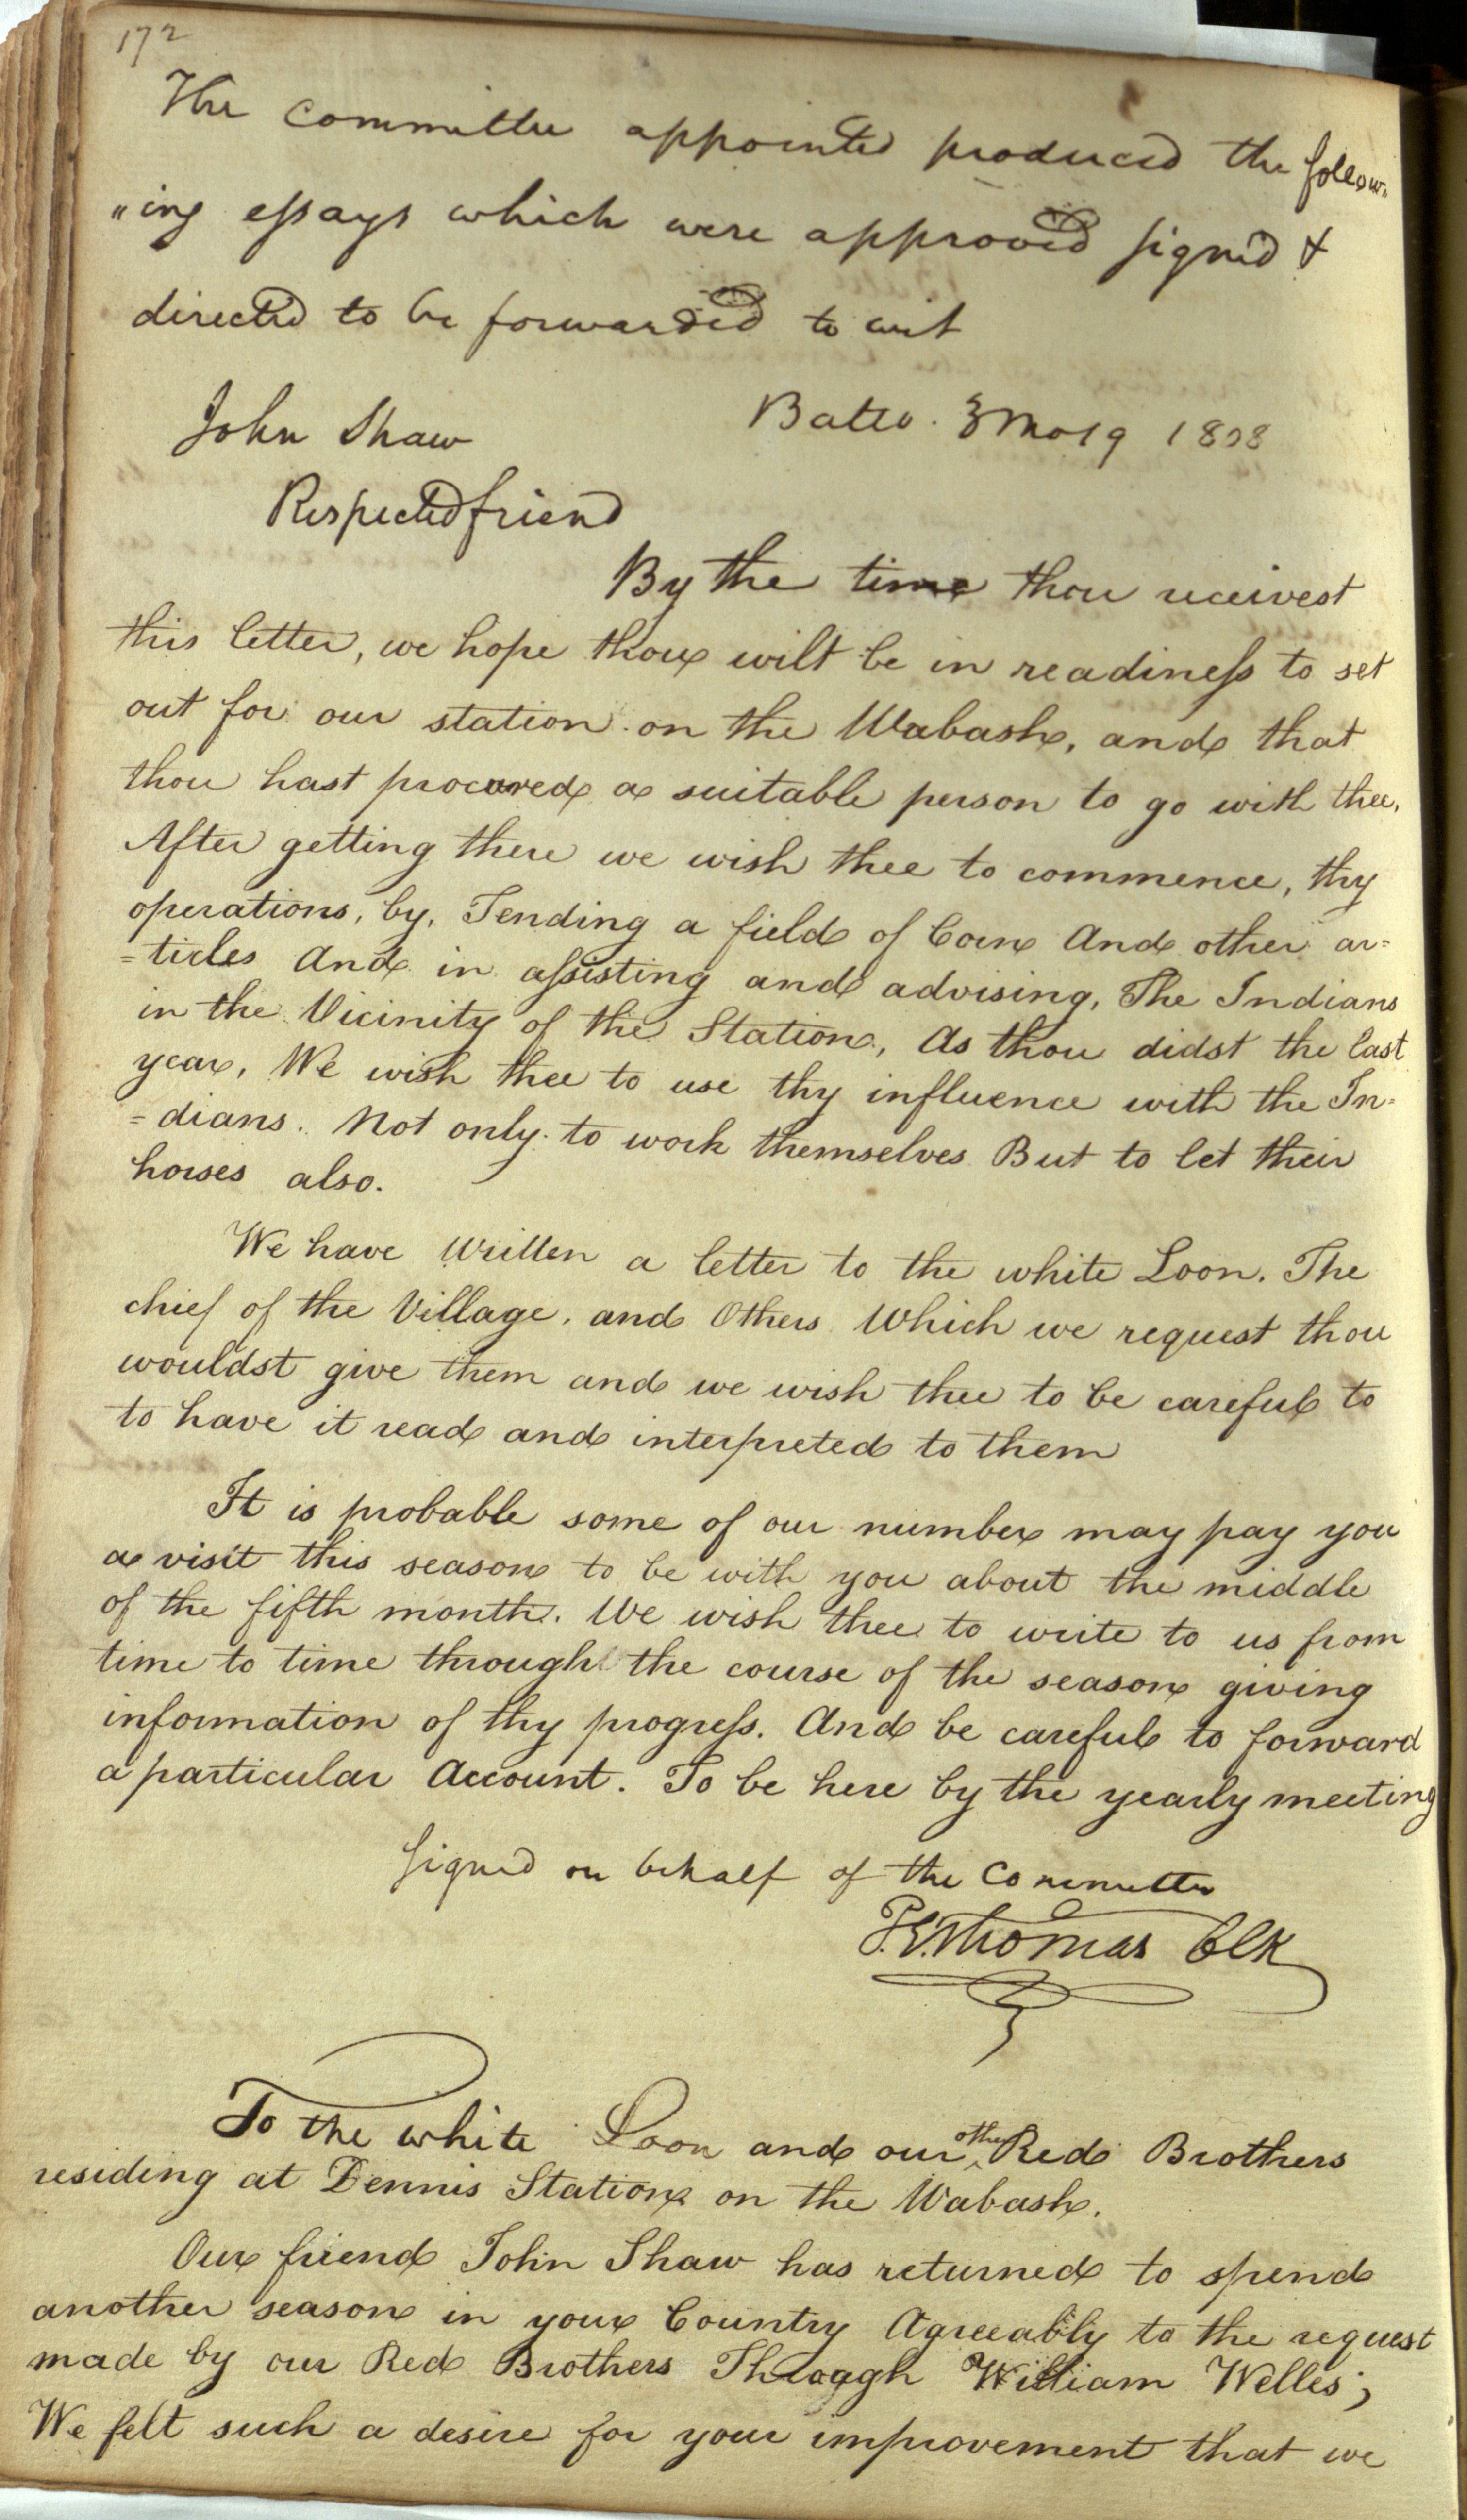 172
The committee appointed produced the follow„
„ing essays which were approved signed &
directed to be forwarded to wit
Balto. 3 mo 19 1808
John Shaw
Respected friend
By the time thou receivest
this letter, we hope thou wilt be in readiness to set
out for our station on the Wabash, and that
thou hast procured a suitable person to go with thee,
After getting there we wish thee to commence, thy
operations, by, Tending a field of Corn And other ar=
=ticles And in assisting and advising, The Indians
in the Vicinity of the Station, As thou didst the last
year, We wish thee to use thy influence with the In=
=dians. Not only to work themselves But to let their
horses also.
We have Written a letter to the white Loon. The
chief of the Village, and Others Which we request thou
wouldst give them and we wish thee to be careful to
to have it read and interpreted to them
It is probable some of our number may pay you
a visit this season to be with you about the middle
of the fifth month. We wish thee to write to us from
time to time through the course of the season giving
information of thy progress. And be careful to forward
a particular Account. To be here by the yearly meeting
Signed on behalf of the Committee
P.E. Thomas Clk
To the white Loon and our other Red Brothers
residing at Dennis Station on the Wabash.
Our friend John Shaw has returned to spend
another season in your Country Agreeably to the request
made by our Red Brothers Through William Welles;
We felt such a desire for your improvement that we